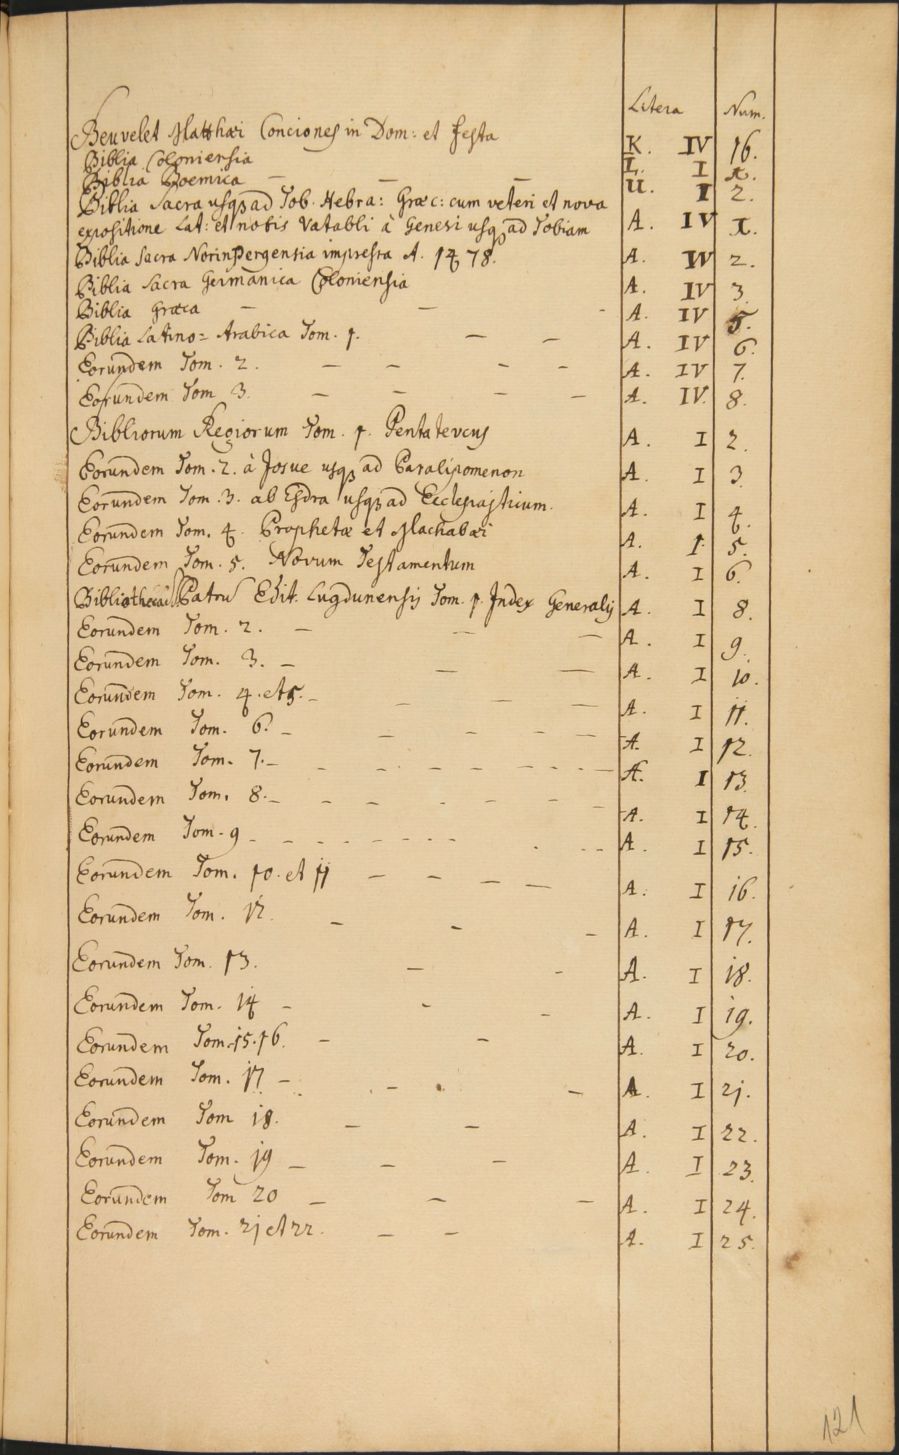 Litera Num.
Beuvelet Matthæi Conciones in Dom: et Festa K. IV 16.
Biblia Coloniensia L. I 1.
Biblia Boemica — — — U. I 2.
Biblia Sacra usqȝ ad Job. Hebra: Græc: cum veteri et nova
expositione Lat: et nobis Vatabli à Genesi usqȝ ad Tobiam A. IV 1.
Biblia Sacra Norinbergensia impressa A. 1478. A. IV 2.
Biblia Sacra Germanica Coloniensia A. IV 3.
Biblia Græca — — - A. IV 5.
Biblia Latino= Arabica Tom. 1. — — A. IV 6.
Eorundem Tom. 2. — — - - A. IV 7.
Eorundem Tom 3. — — — — A. IV. 8.
Bibliorum Regiorum Tom. 1. Pentatevcus A. I 2.
Eorundem Tom. 2. à Josue usqȝ ad Paralipomenon A. I 3.
Eorundem Tom. 3. ab Esdra usqȝ ad Ecclesiasticum. A. I 4.
Eorundem Tom. 4. Prophetæ et Machabæi A. I. 5.
Eorundem Tom. 5. Novum Testamentum A. I 6.
Bibliothecæ Patrũ Edit. Lugdunensis Tom. 1. Index Generalis A. I 8.
Eorundem Tom. 2. — — — A. I 9.
Eorundem Tom. 3. — — — A. I 10.
Eorundem Tom. 4. et 5. — — — — A. I 11.
Eorundem Tom. 6. — — — - — A. I 12.
Eorundem Tom. 7. — - - - - - - - — A. I 13.
Eorundem Tom. 8. — - - - - - - A. I 14.
Eorundem Tom. 9 - - - - - - - - - - A. I 15.
Eorundem Tom. 10. et 11 — — — — A. I 16.
Eorundem Tom. 12. — - - A. I 17.
Eorundem Tom. 13. — - A. I 18.
Eorundem Tom. 14 — - - A. I 19.
Eorundem Tom. 15. 16. — — A. I 20.
Eorundem Tom. 17 — - - — A. I 21.
Eorundem Tom 18. — — A. I 22.
Eorundem Tom. 19 — — — A. I 23.
Eorundem Tom 20 — — — A. I 24.
Eorundem Tom. 21 et 22. — — A. I 25.
121